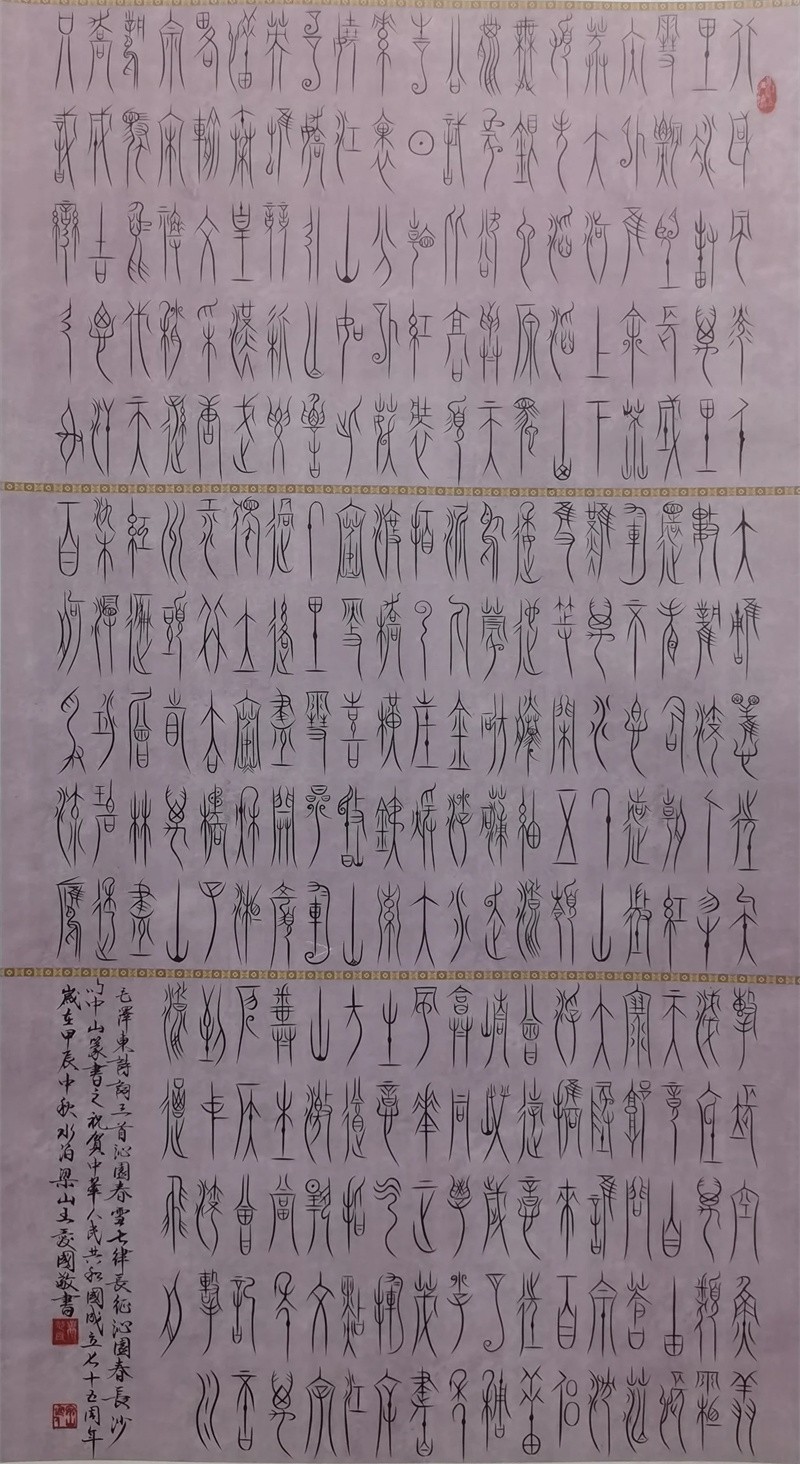 北國風光千
里冰封萬里
雪飄望長城
內外惟餘莽
莽大河上下
頓失滔滔山
舞銀蛇原馳
蠟象欲與天
公試比高須
晴日看紅裝
素裹分外妖
嬈江山如此
多嬌引無數
英雄競折腰
惜秦皇漢武
略輸文采唐
宗宋祖稍遜
風騷一代天
驕成吉思汗
只識彎弓射
大雕俱往矣
數風流人物
還看今朝紅
軍不怕遠征
難萬水千山
只等閑五嶺
逶迤騰細浪
烏蒙磅礴走
泥丸金沙水
拍雲崖暖大
渡橋橫鐵索
寒更喜岷山
千里雪三軍
過後盡開顏
獨立寒秋湘
江北去橘子
洲頭看萬山
紅遍層林盡
染漫江碧透
百舸爭流鷹
擊長空魚翔
淺底萬類霜
天競自由悵
寥廓問蒼茫
大地誰主沉
浮攜來百侶
曾遊憶往昔
崢嶸歲月稠
恰同學少年
風華正茂書
生意氣揮斥
方遒指點江
山激揚文字
糞土當年萬
戶侯曾記否
到中流擊水
浪遏飛舟
毛澤東詩詞三首沁園春雪七律長征沁園春長沙
以中山篆書之祝賀中華人民共和國成立七十五周年
歲在甲辰中秋水泊梁山王愛國敬書